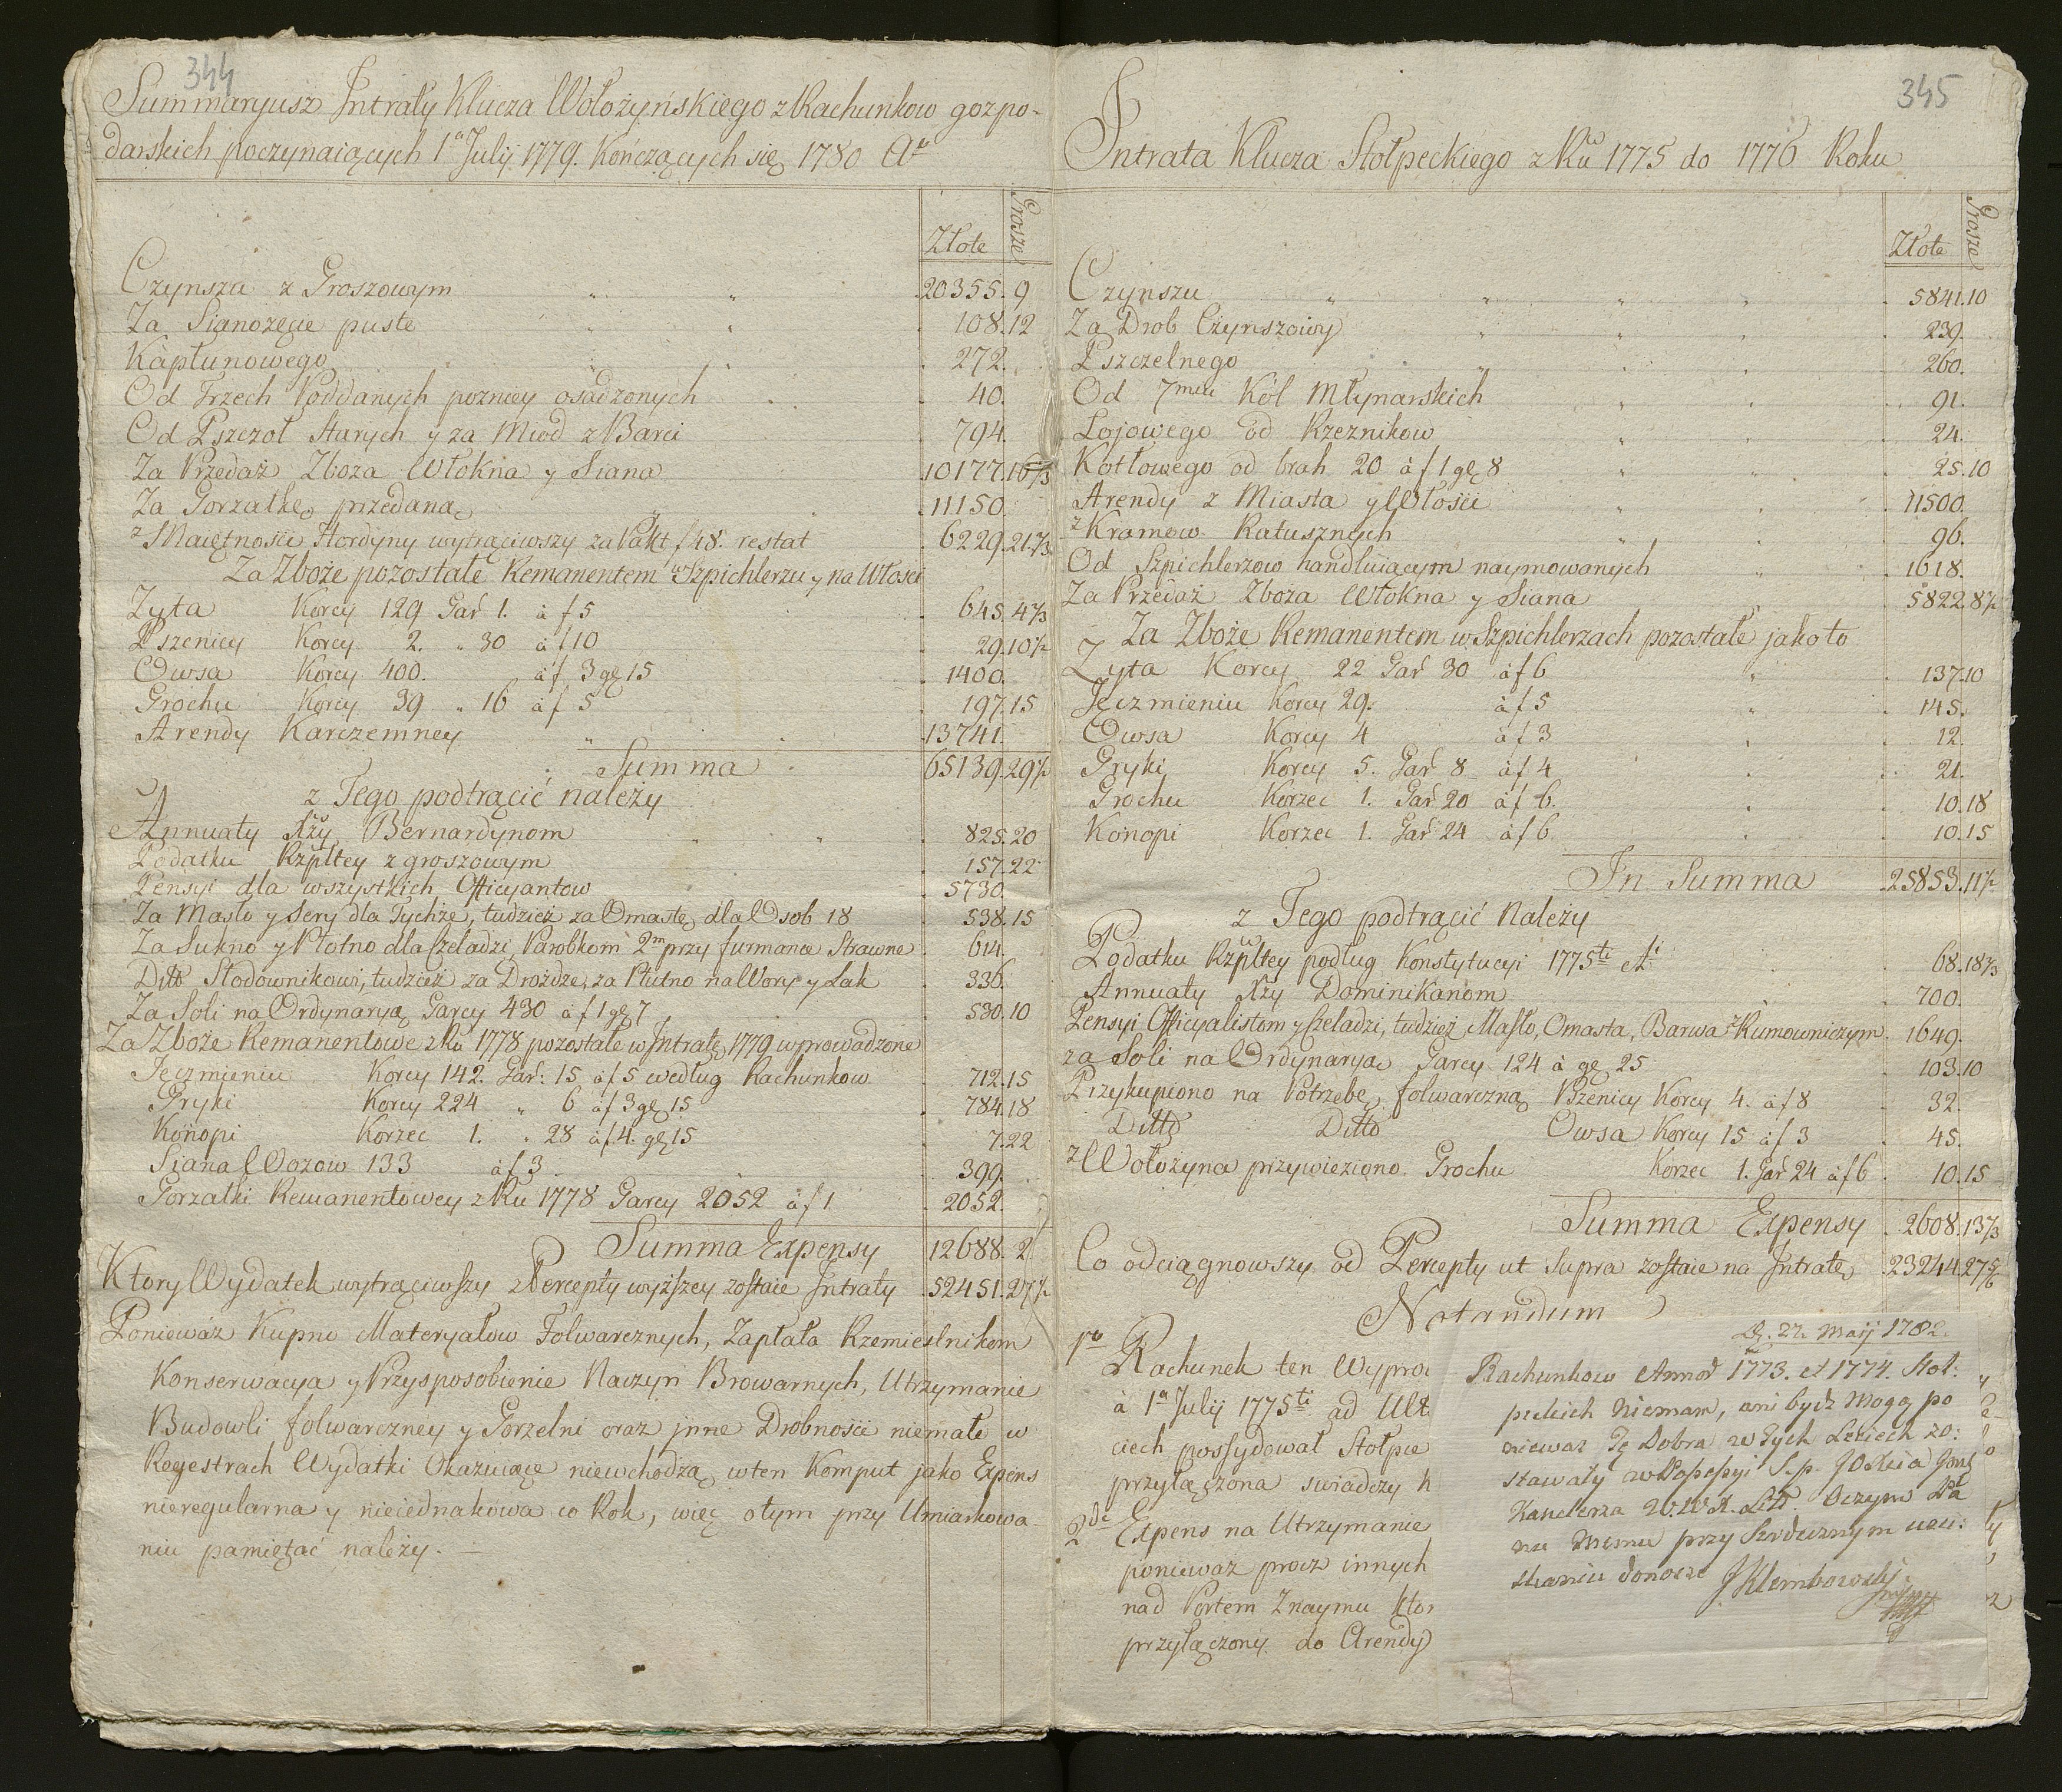 344
Summaryusz Intraty Klucza Wołożyńskiego z Rachunkow gozpo-
darskich poczynaiących 1a Julij 1779. Kończących się 1780 Ao
Złote Grosze
Czynszu z Groszowym 20355. 9
Za Sianożęcie puste 108. 12
Kapłunowego 272.
Od Trzech Poddanych pozniey osadzonych 40.
Od Pszczoł Starych y za Miod z Barci 794.
Za Przedaż Zboża Włokna y Siana 10177. 16 2/3
Za Gorzałkę przedaną 11150.
z Maiętnosci Hordyny wytrąciwszy za Pakt f 48. restat 6229. 21 1/3
Za Zboże pozostałe Remanentem w Szpichlerzu y na Włosci
Zyta Korcy 129 Gar 1. à f 5 645. 4 1/3
Pszenicy Korcy 2. " 30 à f 10 29. 10 1/2
Owsa Korcy 400. à f 3 gę 15 1400.
Grochu Korcy 39 " 16 à f 5 197. 15
Arendy Karczemney 13741.
Summa 65139. 29 1/2
z Tego podtrącić należy
Annuaty Xży Bernardynom 825. 20
Podatku Rzpltey z groszowym 157. 22
Pensyi dla wszystkich Officyantow 5730.
Za Masło y Sery dla Tychże, tudzież za Omastę dla Osob 18 538. 15
Za Sukno y Płotno dla Czeladzi, Parobkom 2m przy furmance Strawne 614.
Ditto Słodownikowi, tudzież za Drożdże, za Płutno na Wory y Łak 336.
Za Soli na Ordynaryą Garcy 430 à f 1 gę 7 530. 10
Za Zboże Remanentowe z Ru 1778 pozostałe w Intratę 1779 wprowadzone
Jęczmieniu Korcy 142. Gar: 15 à f 5 według Rachunkow 712. 15
Gryki Korcy 224 " 6 à f 3 gę 15 784. 18
Konopi Korzec 1. " 28 à f 4. gę 15 7. 22
Siana Wozow 133 à f 3 399.
Gorzałki Remanentowey z Ru 1778 Garcy 2052 à f 1 2052.
Summa Expensy 12688. 2
Ktory Wydatek wytrąciwszy z Percepty wyższey zostaie Intraty 52451. 27 1/2
Ponieważ Kupno Materyałow Folwarcznych, Zapłata Rzemieslnikom
Konserwacya y Przysposobienie Naczyń Browarnych, Utrzymanie
Budowli folwarczney y Gorzelni oraz jnne Drobnoscie niemałe w
Regestrach Wydatki Okazuiące niewchodzą w ten Komput jako Expens
nieregularna y nieiednakowa co Rok, więc o tym przy Umiarkowa-
niu pamiętać należy. —
345
Intrata Klucza Stołpeckiego z Ru 1775 do 1776 Roku
Złote Grosze
Czynszu 5841. 10
Za Drob Czynszowy 239.
Pszczelnego 260.
Od 7miu Kół Młynarskich 91.
Łojowego od Rzeznikow 24.
Kotłowego od brah 20 à f 1 gę 8 25. 10
Arendy z Miasta y Włosci 11500.
z Kramow Ratusznych 96.
Od Szpichlerzow handluiącym naymowanych 1618.
Za Przedaż Zboża Włokna y Siana 5822. 8 1/2
Za Zboże Remanentem w Szpichlerzach pozostałe jako to
Zyta Korcy 22 Gar 30 à f 6 137. 10
Jęczmieniu Korcy 29. à f 5 145.
Owsa Korcy 4 à f 3 12.
Gryki Korcy 5. Gar 8 à f 4 21.
Grochu Korzec 1. Gar 20 à f 6. 10. 18
Konopi Korzec 1. Gar 24 à f 6 10. 15
In Summa 25853. 11 1/2
z Tego podtrącić Należy
Podatku Rzpltey podług Konstytucyi 1775ti Ai 68. 18 1/3
Annuaty Xży Dominikanom 700.
Pensyi Officyalistom y Czeladzi, tudzież Masło, Omasta, Barwa z Kumowniczym 1649.
za Soli na Ordynaryą Garcy 124 à gę 25 103. 10
Przykupiono na Potrzebę folwarczną Pszenicy Korcy 4. à f 8 32.
Ditto Ditto Owsa Korcy 15 à f 3 45.
z Wołożyna przywieziono Grochu Korzec 1. Gar 24 à f 6 10. 15
Summa Expensy 2608. 13 1/3
Co odciągnowszy od Percepty ut Supra zostaie na Intratę 23244. 27 5/6
Notandum
1mo Rachunek ten Wypro
à 1a Julij 1775ti ad Ult
ciech possydował Stołpce
przyłączona swiadczy
2do Expens na Utrzymanie
ponieważ procz innych
nad Portem Znaymu ktor
przyłączony do Arendy
D. 27. Maij 1782.
Rachunkow Annor 1773. et 1774. Stoł:
peckich niemam, ani bydz mogą po
nieważ Te Dobra w Tych Leciech zo:
stawały w Possessyi S.p. JOXcia Jmci
Kanclerza W. W. X. Litt. Oczym Pa
nu Memu przy Serdecznym ucu:
skaniu donoszę J Klembowski